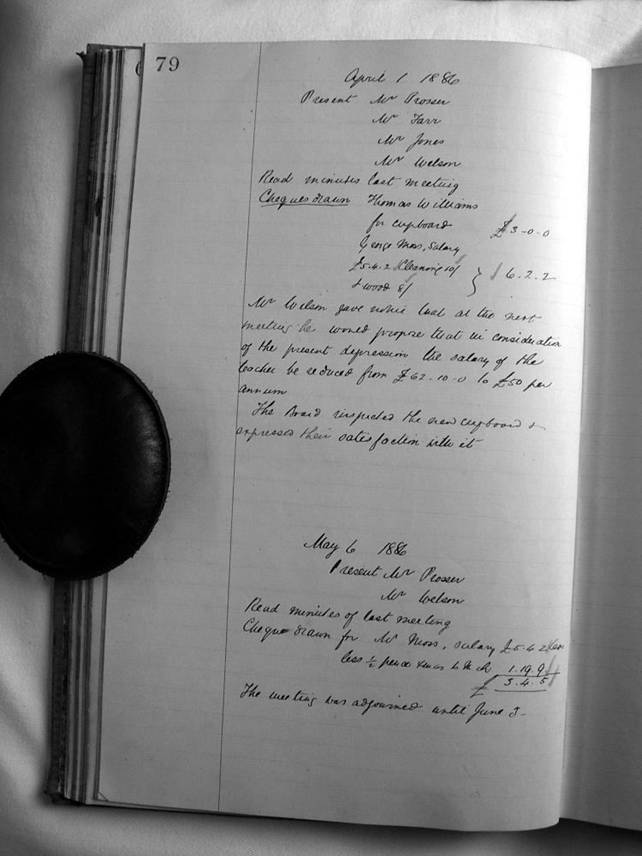 79
April 1 1886
Present Mr Prosser
Mr Farr
Mr Jones
Mr Welson
Read minutes last meeting
Cheques drawn Thomas Williams
for cupboard £3-0-0
George Moss, Salary
£5.4.2 Cleaning 10/ } 6.2.2
& wood 8/
Mr Welson gave notice that at the next
meeting he would propose that in consideration
of the present depression the salary of the
teacher be reduced from £62-10-0 to £50 per
annum
The Board inspected the new cupboard &
expressed their satisfaction with it
May 6 1886
Present Mr Prosser
Mr Welson
Read minutes of last meeting
Cheque drawn for Mr Moss, salary £5.4.2
less ½ pence 1.19.9
£ 3.4.5
The meeting was adjourned until June 3-